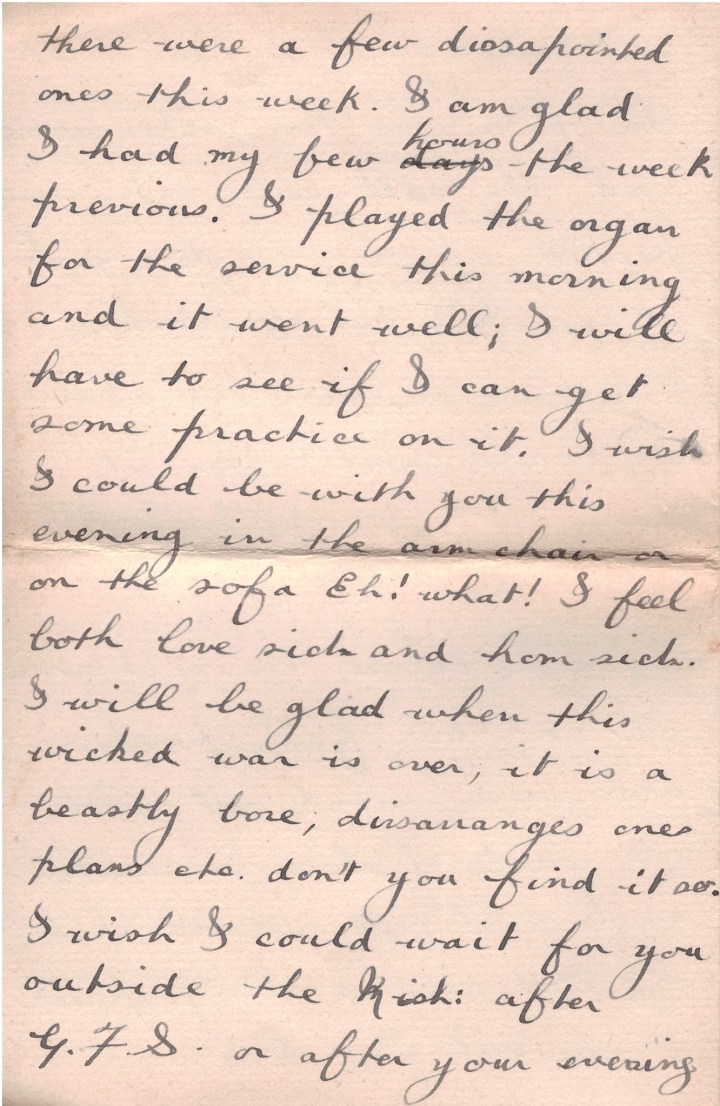 there were a few dissapointed
ones this week. I am glad
I had my few days hours the week
previous. I played the organ
for the service this morning
and it went well; I will
have to see if I can get
some practice on it. I wish
I could be with you this
evening in the arm chair or
on the sofa Eh! what! I feel
both love sick and hom sick.
I will be glad when this
wicked war is over, it is a
beastly bore, disarranges ones
plans etc. don't you find it so.
I wish I could wait for you
outside the after
G.F.S. or after your evening